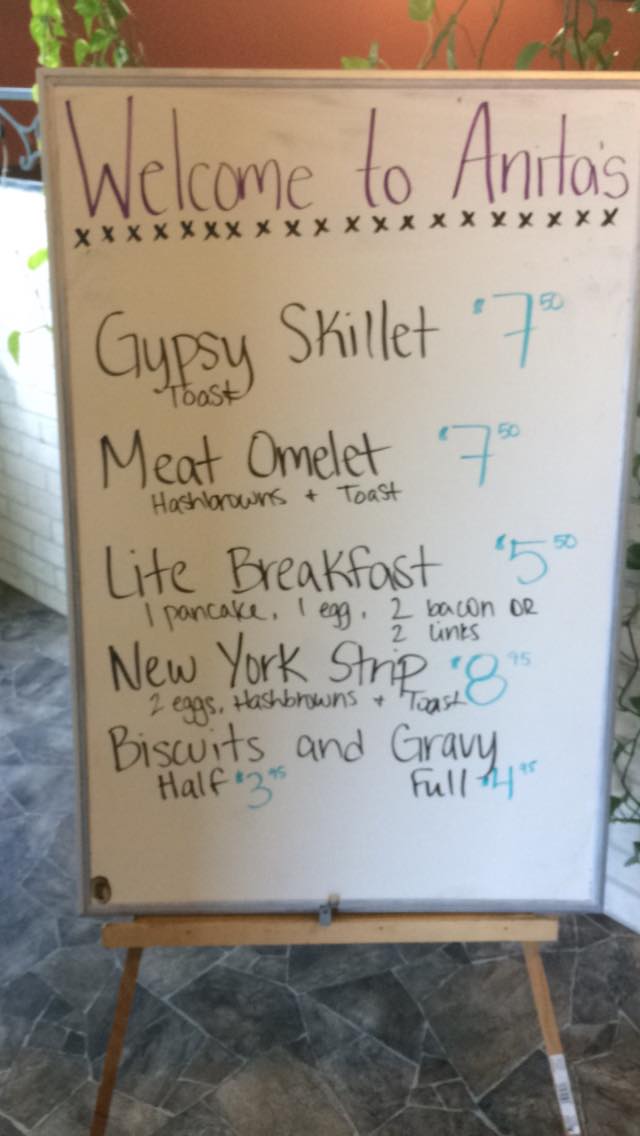 Welcome to Anita's
xxxxxxxxxxxxxxxxxxx
Gypsy Skillet $7.50
Toast
Meat Omelet $7.50
Hashbrowns + Toast
Lite Breakfast $5.50
1 pancake, 1 egg, 2 bacon OR
2 links
New York Strip $8.95
2 eggs, Hashbrowns + Toast
Biscuits and Gravy
Half $3.95 Full $4.95